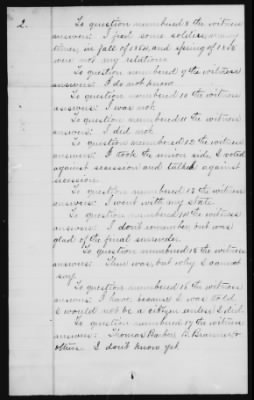 2.
To question numbered 8 the witness
answers: I fed some soldiers many
times, in fall of 1864, and spring of 1865
were not my relations
To question numbered 9 the witness
answers: I do not know
To question numbered 10 the witness
answers: I was not
To question numbered 11 the witness
answers: I did not
To question numbered 12 the witness
answers: I took the union side, I voted
against secession and talked against
secession.
To question numbered 13 the witness
answers: I went with my state
To question numbered 14 the witness
answers: I don't remember, but was
glad of the final surrender
To question numbered 15 the witness
answers: There was, but why I cannot
say
To question numbered 16 the witness
answers: I have, because I was told
I would not be a citizen unless I did.
To question numbered 17 the witness
answers: Thomas Barber, B.
others I don't know yet